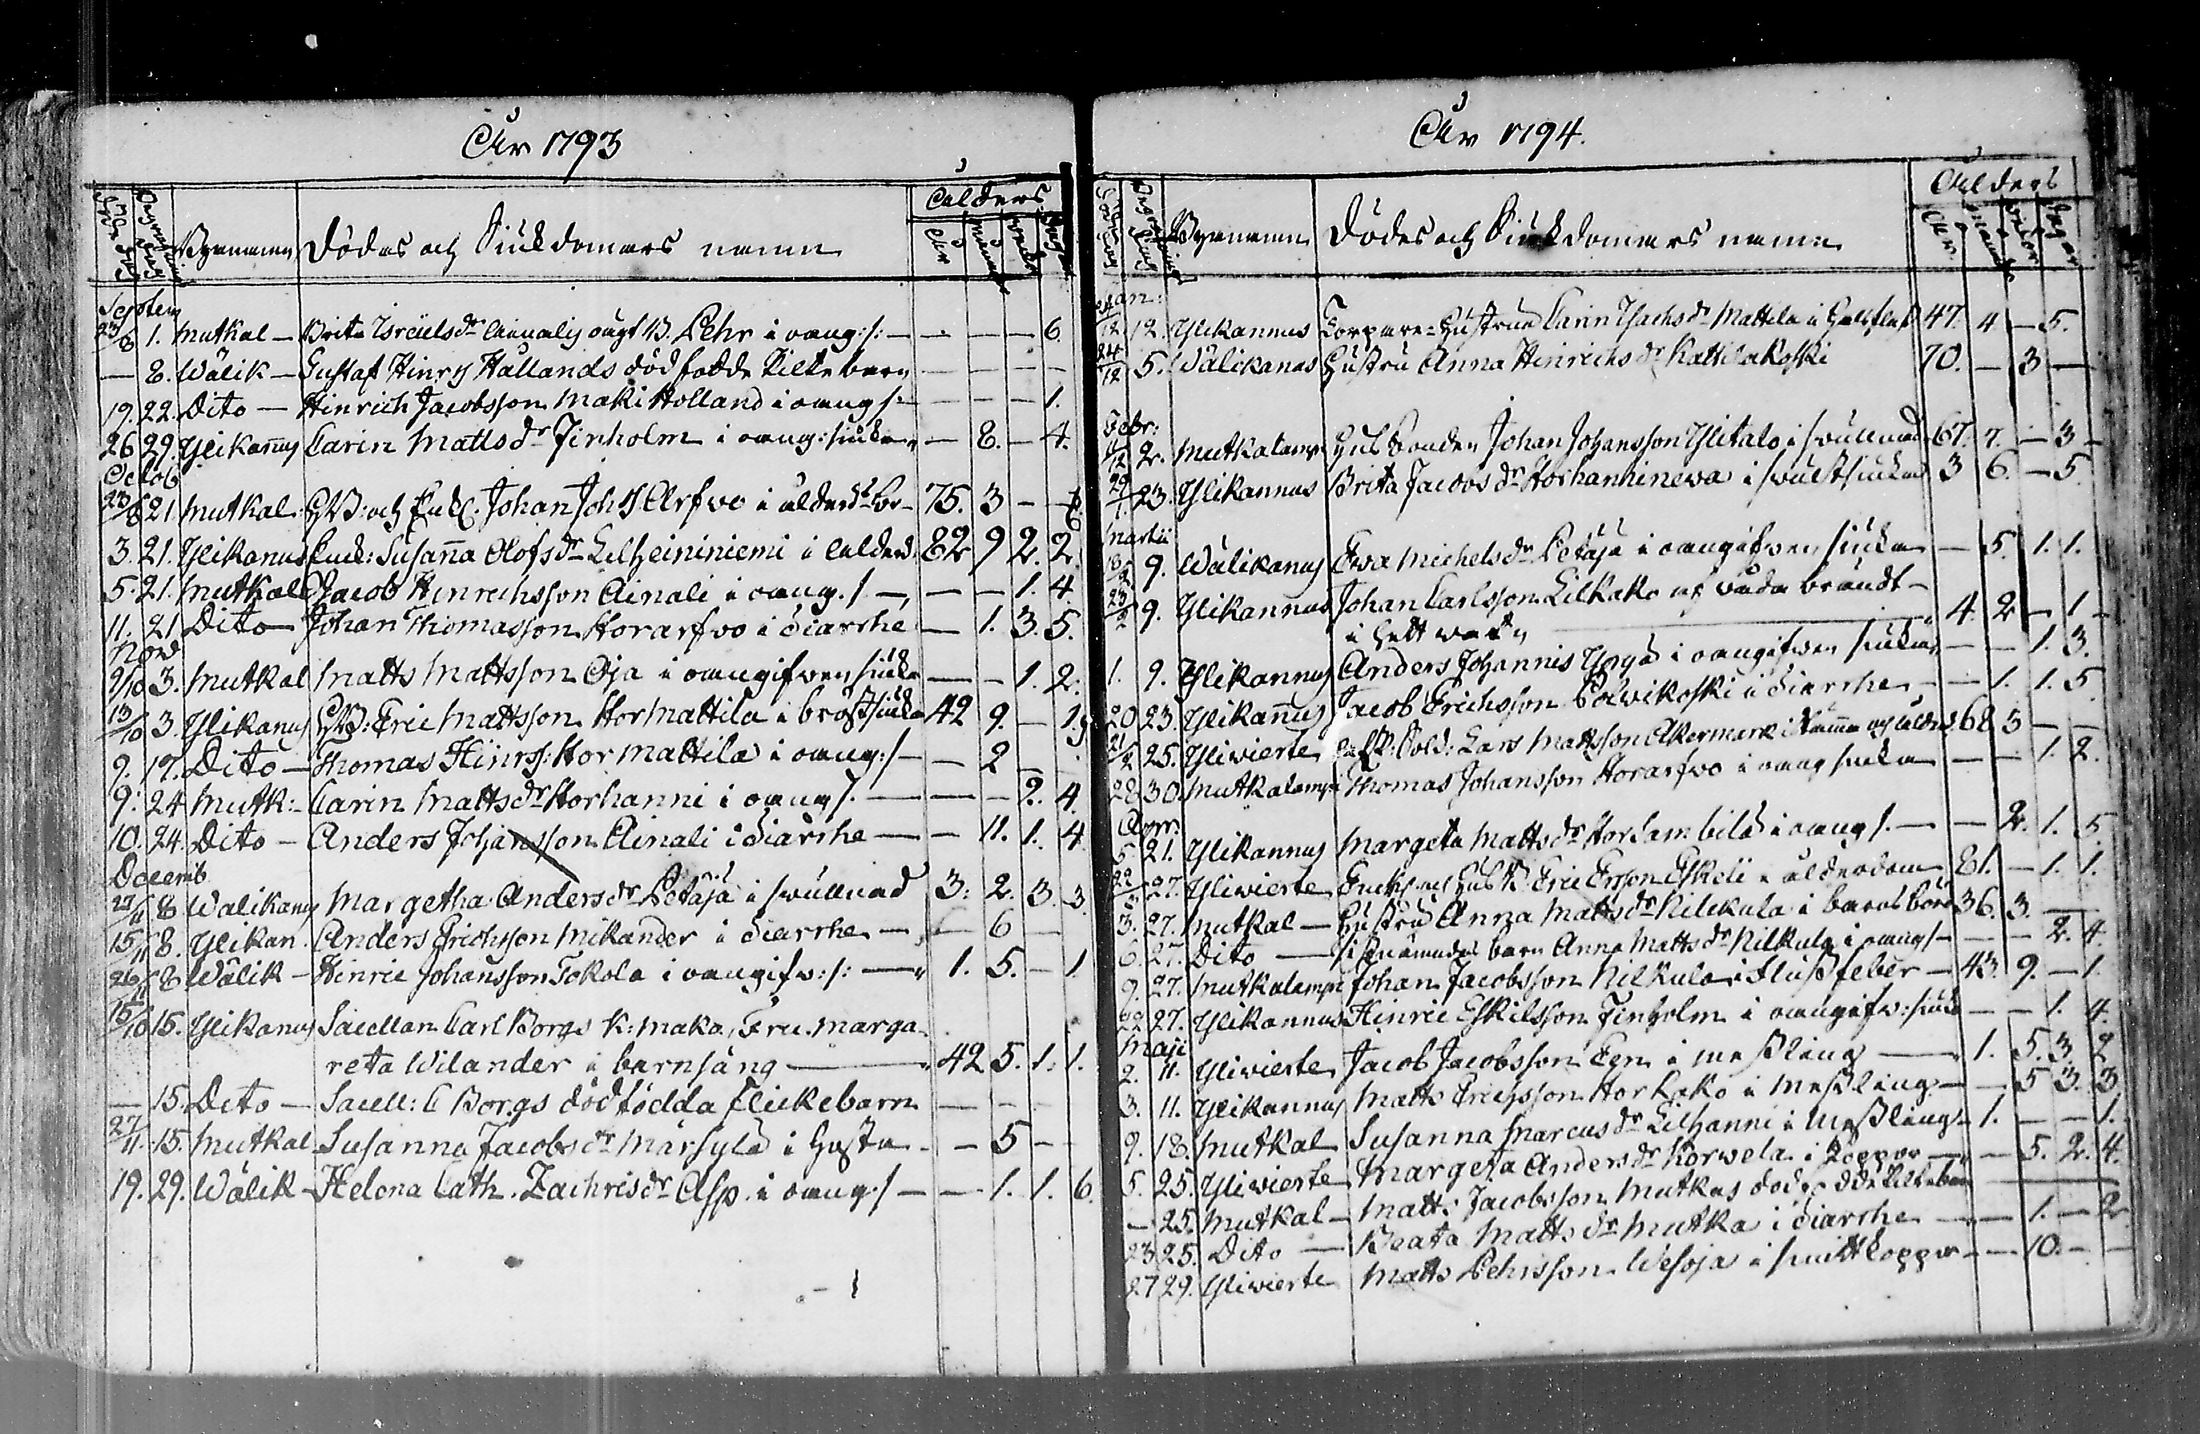 År 1793
Ålders
Byanamn Dödas och Siukdomars namn År
Septem
23/8 1. Mutkal – Brita Israelsdr Ainalis ougt B. Pehr i oang:/: – – – 6.
– 8. Wälik – Gustaf Hinrs Hållands dödfödde Pilte barn – – – –
19. 22. Dito – Hinrich Jacobsson Maki Holland i oang/:– – – – 1.
26 29. Ylikannus Carin Mattsdr Finholm i oang: siuka – 8. – 4.
Octob
23/8 21. Mutkal. Johan Johs Arfvo i ålderd: 75. 3 – –
3. 21. Ylikanus Enck: Susanna Olofsdr Lilheininiemi i ålderd. 82 9 2. 2.
5. 21. Mutkal Jacob Hinrichsson Ainali i oang./ – – – 1. 4
11. 21 Dito – Johan Thomasson Storarfvo i Diarrhe – 1. 3. 5.
Nov
9/10 3. Mutkal Matts Mattsson Oja i oangifven siuka – – 1. 2.
13/10 3. Ylikanus HB: Eric Mattsson Stormattila i bröstsiuka 42 9. – 1.
9. 17. Dito – Thomas Hinrs: Stormattila i oang:/ – – 2 –
9. 24 Mutk:– Carin Mattsdr Storhanni i oang/. – – – 2. 4
10. 24. Dito – Anders Johansson Ainali i Diarrhe – – 11. 1. 4
Decemb
27/11 8 Walikanus Margetha Andersdr Petäjä i svullnad 3: 2. 3 3.
15/11 8. Ylikan. Anders Erichsson Mikander i Diarrhe – – 6 –
26/11 8 Wälik – Hinric Johansson Tokola i oangifv:/: – 1. 5. – 1
15/10 15. Ylikanus Sacellan Carl Borgs K: maka, Fru. Marga-
reta Wilander i barnsäng – 42 5. 1. 1.
– 15. Dito – Sacell: C Borgs dödfödda flickebarn – – –
27/11. 15. Mutkal – Susanna Jacobsdr Märsylä i Hosta – – 5 –
19. 29. Wälik – Helena Cath. Zachrisdr Asp i oang:/ – – 1. 1. 6.
År 1794.
Ålders
Byanamn Dödes och Siukdomars namn År
Jan:
12. Ylikannus Torpare-Hustrun Carin Isachsdr Mattila i 47. 4 – 5.
24/12 5. Wälikanus Hustru Anna Hinrichsdr Kattilakoski 70. – 3 –
Febr:
2. Mutkalamp Husbonden Johan Johansson Ylitalo i svullnad 67. 7. – 3 –
29/1. 23. Ylikannus Brita Jacobsdr Storhanhinewa i svulstsiuka 3 6. – 5
Martii
18/2 9. Wälikanus Ewa Michelsdr Petäjä i oangifven siuka – 5. 1. 1.
23/2 9. Ylikannus Johan Carlsson Lilkako af våda brändt –
i hett watn – 4. 2 – 1 –
1. 9. Ylikannus Anders Johannis Yrjä i oangifven siuka – – 1. 3.
20 23. Ylikannus Jacob Erichsson Polwikoski i Diarrhe – – 1. 1. 5
21/2 25. Ylivierte Sold: Lars Mattsson Åkermark 68 3 – –
28 30. Mutkalamp Thomas Johansson Storarfvo i oang siuka – – 1. 2.
Apr:
5 21. Ylikannus Margeta Mattsdr Storsambild i oang/. – – 2. 1. 5.
27. Ylivierte Eric Ersson Eskeli i ålderdom 81. – 1. 1.
3. 27. Mutkal – Hustru Anna Mattsdr Nilkula i barnsbörd 36. 3. –
6. 27. Dito – barn Anna Mattsdr Nilkula i oang/– – – 2. 4.
9. 27. Mutkalamp Johan Jacobsson Nilkula i flussfeber – 43. 9. – 1.
27. Ylikannus Hinric Eskilsson Finholm i oangifv: siuka – – 1. 4.
Maji
2. 11. Ylivierte Jacob Jacobsson i messling – 1. 5. 3. 2
3. 11. Ylikannus Matts Erichsson Storkako i messling – – 5 3. 3
9. 18. Mutkal Susanna Marcusdr Lilhanni i messling – 1. – – 1.
5. 25. Ylivierte Margeta Andersdr Korwela i Koppor – – 5. 2. 4.
– 25. Mutkal – Matts Jacobsson Mutkas dödfödde Piltebarn –
23 25. Dito – Beata Mattsdr Mutka i Diarrhe – – 1. – 2
27 29. Ylivierte Matts Pehrsson Wesoja i smittkoppor – – 10. – –